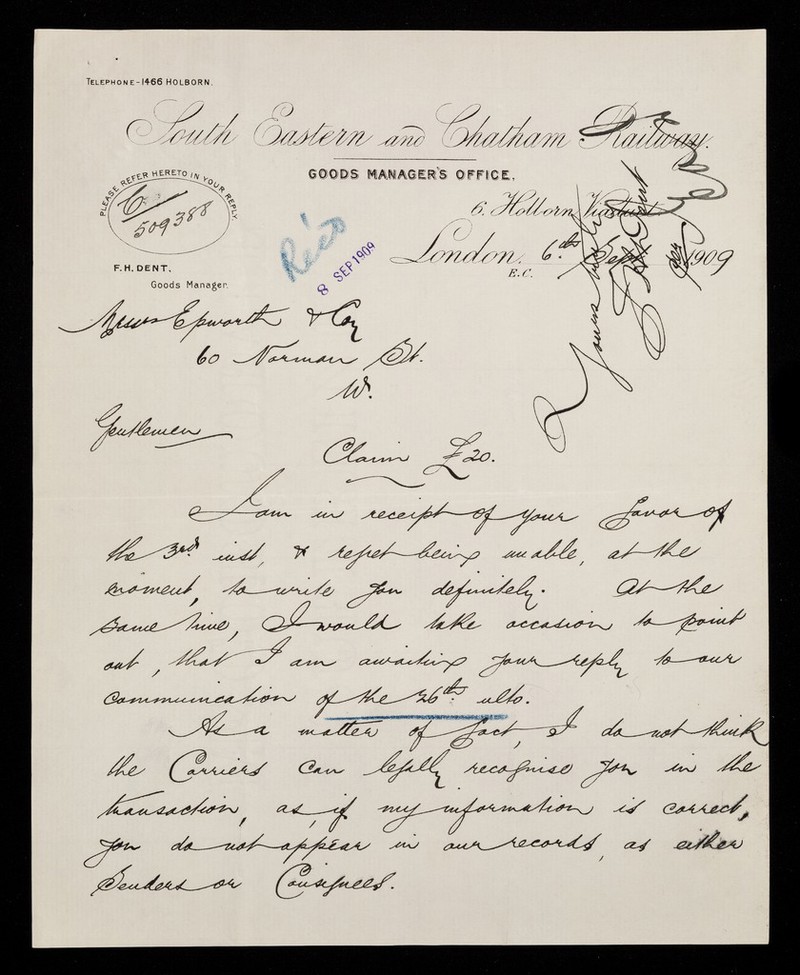 TELEPHONE-1466 HOLBORN.
South Eastern and Chatham Railway.
GOODS MANAGER'S OFFICE.
PLEASE REFER HERETO IN YOUR REPLY.
C/
509388
6. Holborn Viaduct
London. 6th Sept 1909
E.C.
F.H. DENT.
Goods Manager.
Rec'd
8 SEP 1909
Messrs Epworth & Coy
60 Norman St.
W.
Gentlemen
Claim £20.
I am in receipt of your favor of
the 3rd inst, & regret being unable, at the
moment, to write you definitely. At the
same time, I would take occasion to point
out, that I am awaiting your reply to our
communication of the 26th ulto.
As a matter of fact, I do not think
the Carriers can legally recognise you in the
transaction, as, if my information is correct,
you do not appear in our records, as either
Senders or Consignees.
Yours truly
F H Dent
per